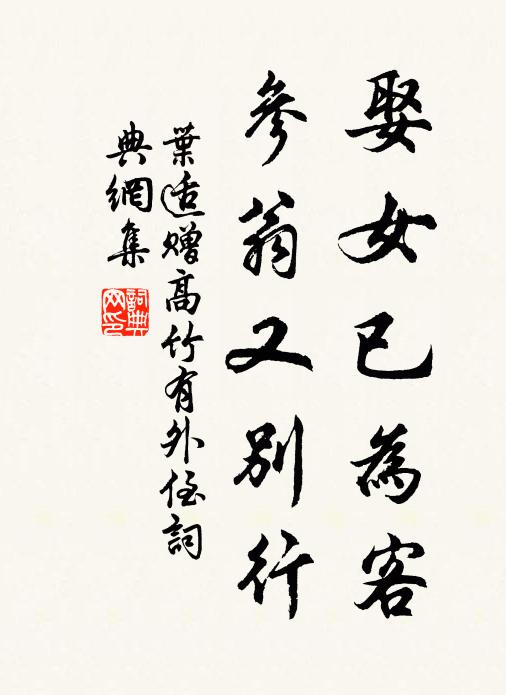 娶女已為客
參翁又別行
葉適贈高竹有外侄詞
典網集
詞典網印